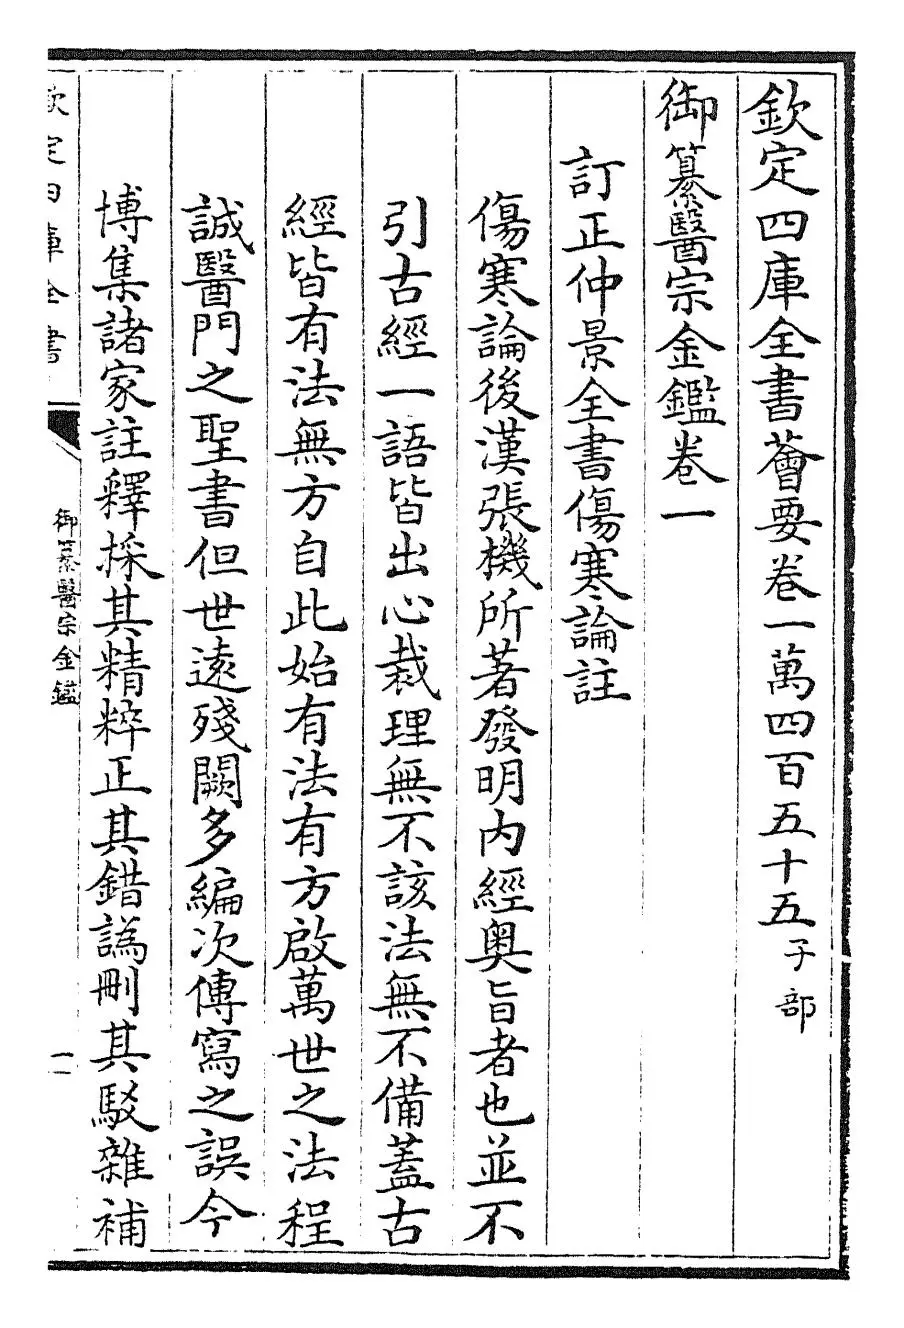 欽定四庫全書薈要卷一萬四百五十五子部
御纂醫宗金鑑卷一
訂正仲景全書傷寒論註
傷寒論後漢張機所著發明内經奥旨者也並不
引古經一語皆出心裁理無不該法無不備蓋古
經皆有法無方自此始有法有方啟萬世之法程
誠醫門之聖書但世遠殘闕多編次傳寫之誤今
博集諸家註釋採其精粹正其錯譌刪其駁雜補
欽定四庫全書
御纂醫宗金鑑
一